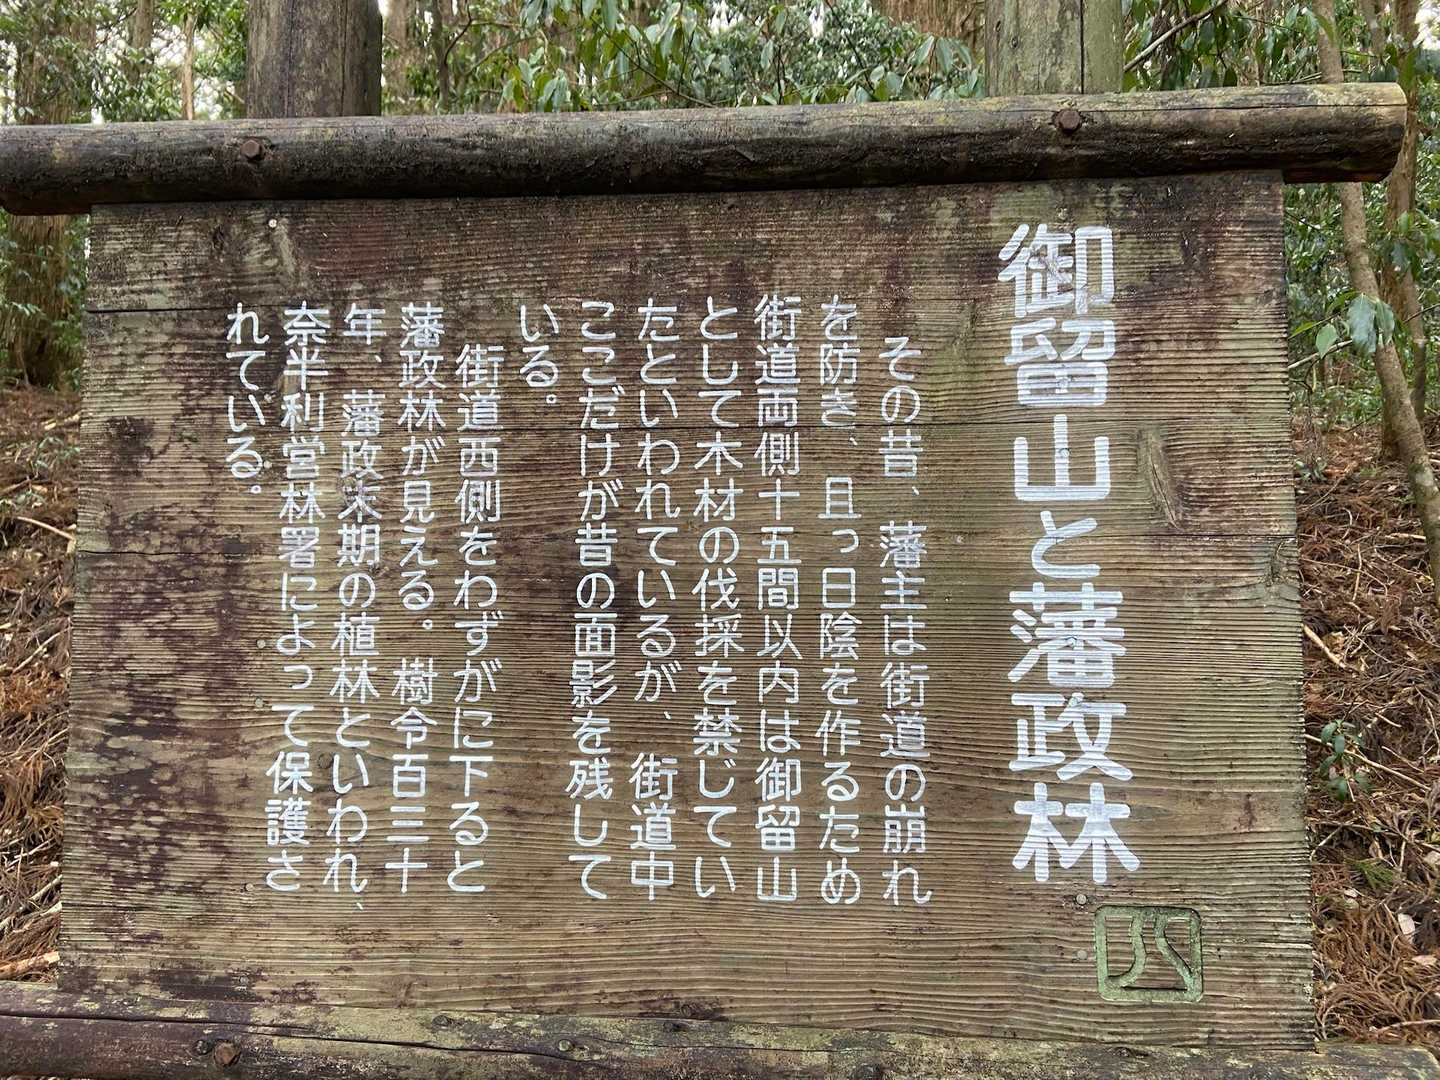 御留山と藩政林
その昔、藩主は街道の崩れ
を防き、且っ日陰を作るため
街道両側十五間以内は御留山
として木材の伐採を禁じてい
たといわれているが、街道中
ここだけが昔の面影を残して
いる。
街道西側をわずがに下ると
藩政林が見える。樹令百三十
年、藩政末期の植林といわれ、
奈半利営林署によって保護さ
れている。